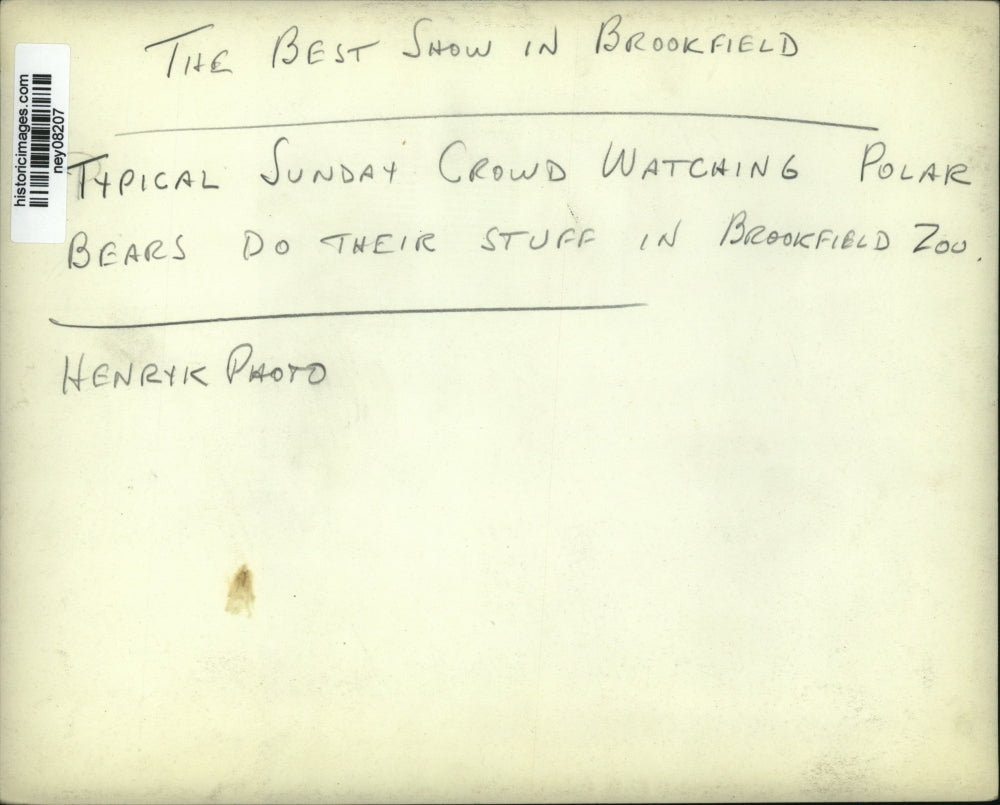 THE BEST SHOW IN BROOKFIELD
TYPICAL SUNDAY CROWD WATCHING POLAR
BEARS DO THEIR STUFF IN BROOKFIELD ZOO.
HENRYK PHOTO
historicimages.com
ney08207